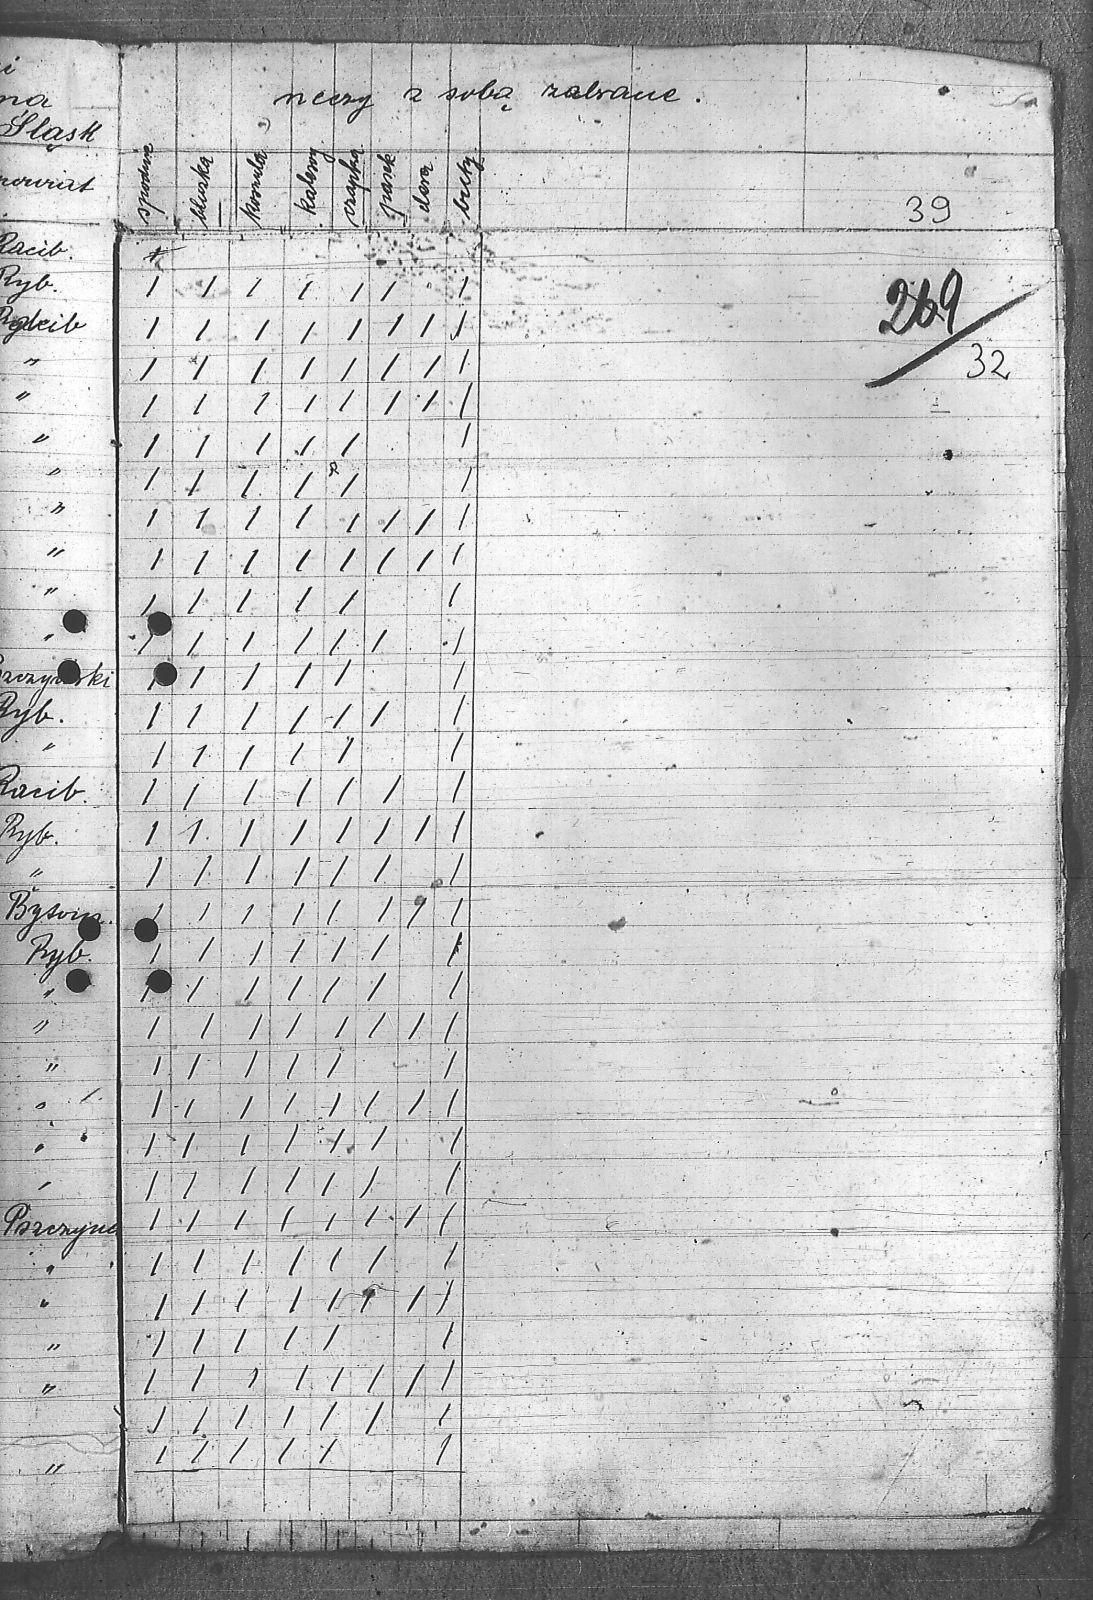 rzeczy z sobą zabrane.
na
Śląsk
powiat
spodnie bluzka koszula kalesony czapka pasek derа buty
39
Racib. +
Ryb. / / / / / / /
269
Racib / / / / / / / /
32
" / / / / / / / /
" / / / / / / / /
" / / / / / /
" / / / / / /
" / / / / / / / /
" / / / / / / / /
" / / / / / /
" / / / / / / /
/ / / / / /
Ryb. / / / / / / /
" / / / / / /
Racib. / / / / / / /
Ryb. / / / / / / / /
" / / / / / / /
Bytom. / / / / / / / /
Ryb. / / / / / / /
" / / / / / / /
" / / / / / / / /
" / / / / / /
" / / / / / / / /
" / / / / / / /
" / / / / / / /
/ / / / / / / /
" / / / / / / /
" / / / / / / / /
" / / / / / /
" / / / / / / / /
/ / / / / / /
" / / / / / /